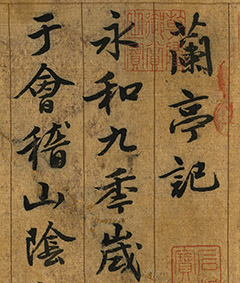 蘭亭記
永和九年歲
于會稽山陰